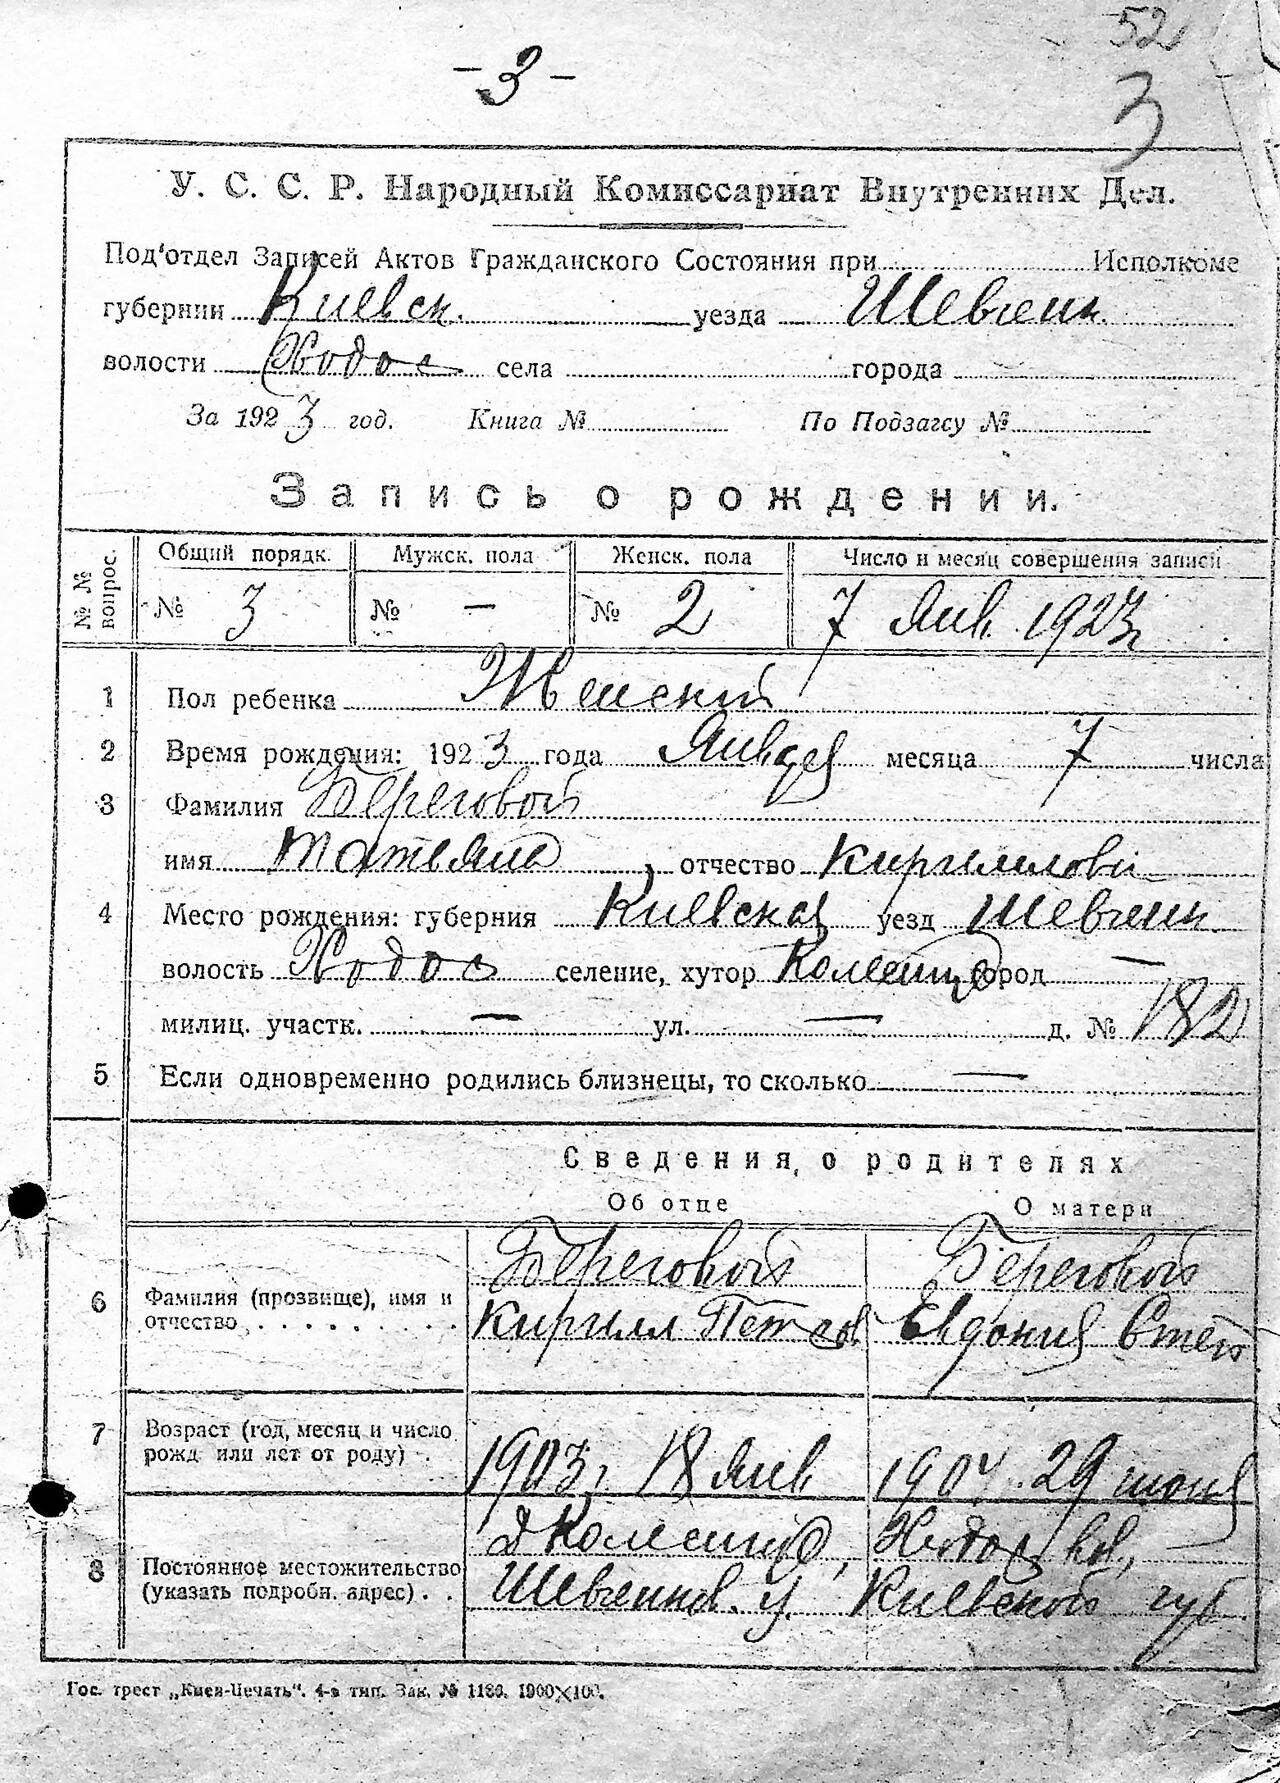 52
- 3 -
3
У. С. С. Р. Народный Комиссариат Внутренних Дел.
Под'отдел Записей Актов Гражданского Состояния при Исполкоме
губернии Киевск. уезда Шевченк.
волости Ходос села города
За 1923 год. Книга № По Подзагсу №
Запись о рождении.
№ № вопрос.
Общий порядк. Мужск. пола Женск. пола Число и месяц совершения записи
№ 3 № — № 2 7 Янв. 1923
1 Пол ребенка Женский
2 Время рождения: 1923 года Января месяца 7 числа
3 Фамилия Береговой
имя Татьяна, отчество Кирилловн
4 Место рождения: губерния Киевская уезд Шевченк
волость Ходос селение, хутор город —
милиц. участк. — ул. — д. № 182
5 Если одновременно родились близнецы, то сколько —
Сведения о родителях
Об отце О матери
Береговой Береговой
6 Фамилия (прозвище), имя и
отчество . . . . . . . . . Кирилл Петров Евдокия Степ
7 Возраст (год, месяц и число
рожд или лет от роду) . 1903, 18 Янв 1904. 29 июня
8 Постоянное местожительство
(указать подробн. адрес) . . Шевченков. у. Киевской губ.
Гос. трест „Киев-Печать". 4-я тип. Зак. № 1180. 1900×100.